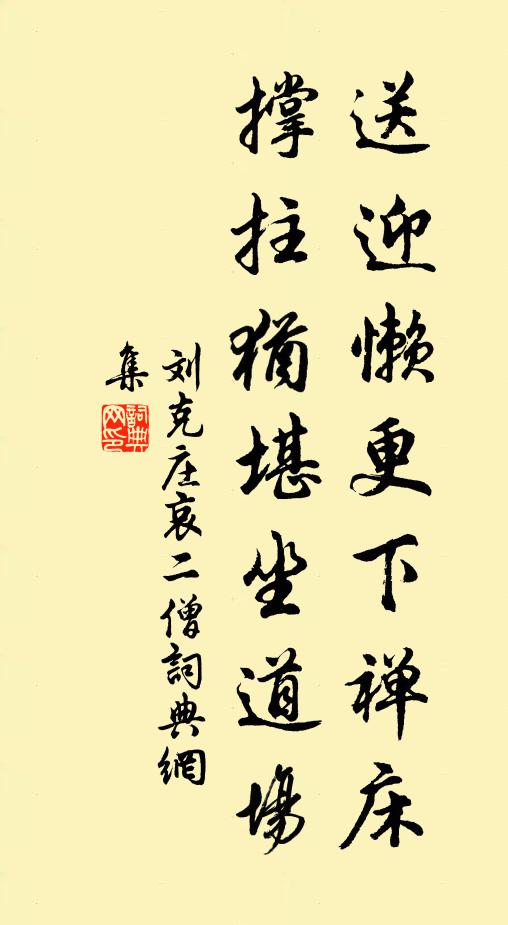 送迎懒更下禅床
撑拄犹堪坐道场
刘克庄哀二僧詞典網
集
詞典网印